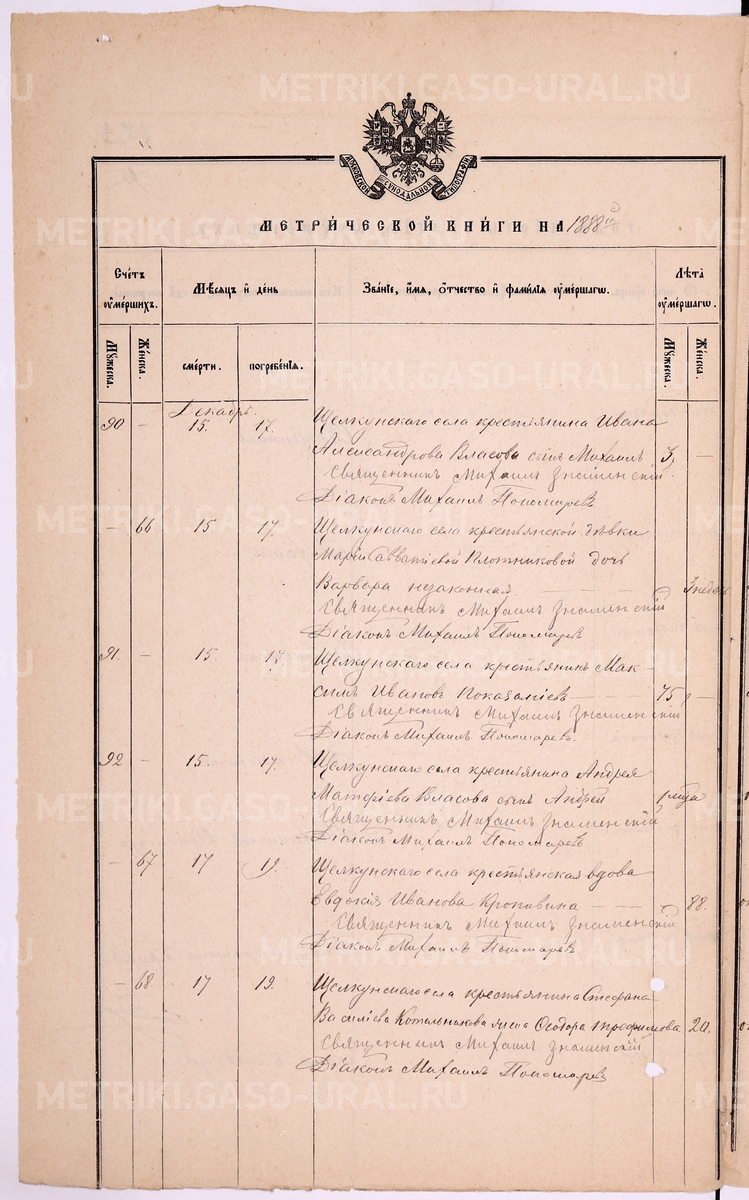 МОСКОВСКОЙ СѴНОДАЛЬНОЙ ТИПОГРАФІИ
МЕТРИ́ЧЕСКОЙ КНИ́ГИ НА 1888й
Сче́тъ ᲂумершихъ.
Мѣсяцъ и день
Зва́нїе, и́мя, ѻ҆тчество и фами́лїя ᲂумершагѡ.
Лѣта̀ ᲂумершагѡ.
Мꙋжеска. Же́нска. сме́рти. погребе́нїя. Мꙋжеска. Же́нска.
Декабрь.
90 — 15. 17. Щелкунскаго села крестьянина Ивана
Александрова Власова сынъ Михаилъ 3, —
Священникъ Михаилъ Знаменскій
Діаконъ Михаилъ Пономаревъ
— 66 15 17. Щелкунскаго села крестьянской дѣвки
Маріи Савватіевой Плотниковой дочь
Варвара незаконная. 3 недѣл
Священникъ Михаилъ Знаменскій
Діаконъ Михаилъ Пономаревъ
91. — 15. 17. Щелкунскаго села крестьянинъ Мак-
симъ Ивановъ 75, —
Священникъ Михаилъ Знаменскій
Діаконъ Михаилъ Пономаревъ.
92 — 15. 17. Щелкунскаго села крестьянина Андрея
Матфіева Власова сынъ Андрей 1 мца
Священникъ Михаилъ Знаменскій
Діаконъ Михаилъ Пономаревъ
— 67 17 19. Щелкунскаго села крестьянская вдова
Евдокія Иванова Кропивина — 88.
Священникъ Михаилъ Знаменскій
Діаконъ Михаилъ Пономаревъ
— 68 17 19. Щелкунскаго села крестьянина Стефана
Василіева Котельникова жена Ѳеодора Трофимова 20.
Священникъ Михаилъ Знаменскій
Діаконъ Михаилъ Пономаревъ
METRIKI.GASO-URAL.RU